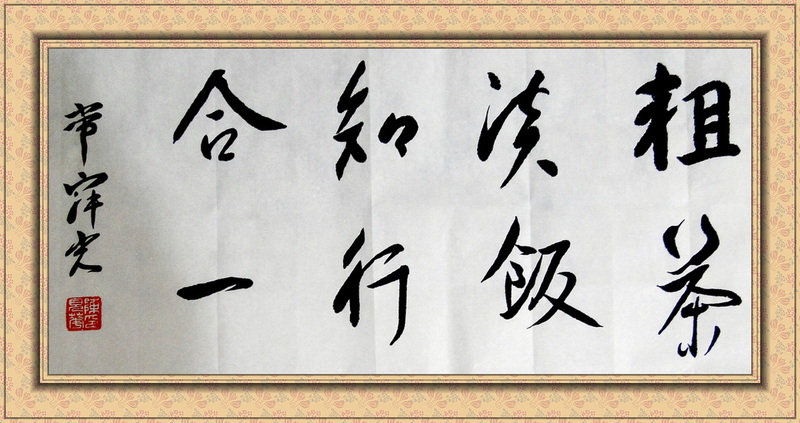 粗茶
淡飯
知行
合一